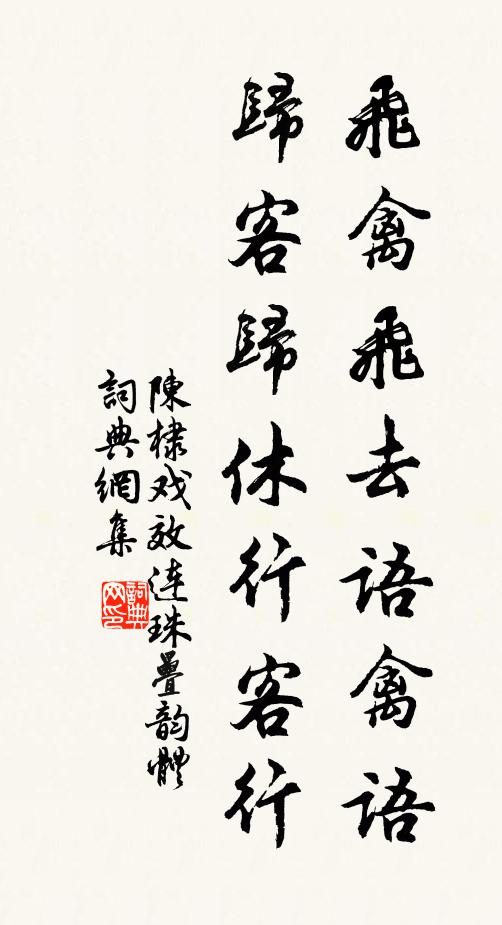 飛禽飛去語禽語
歸客歸休行客行
陳棣戏效连珠疊韵體
詞典網集
詞典
网印